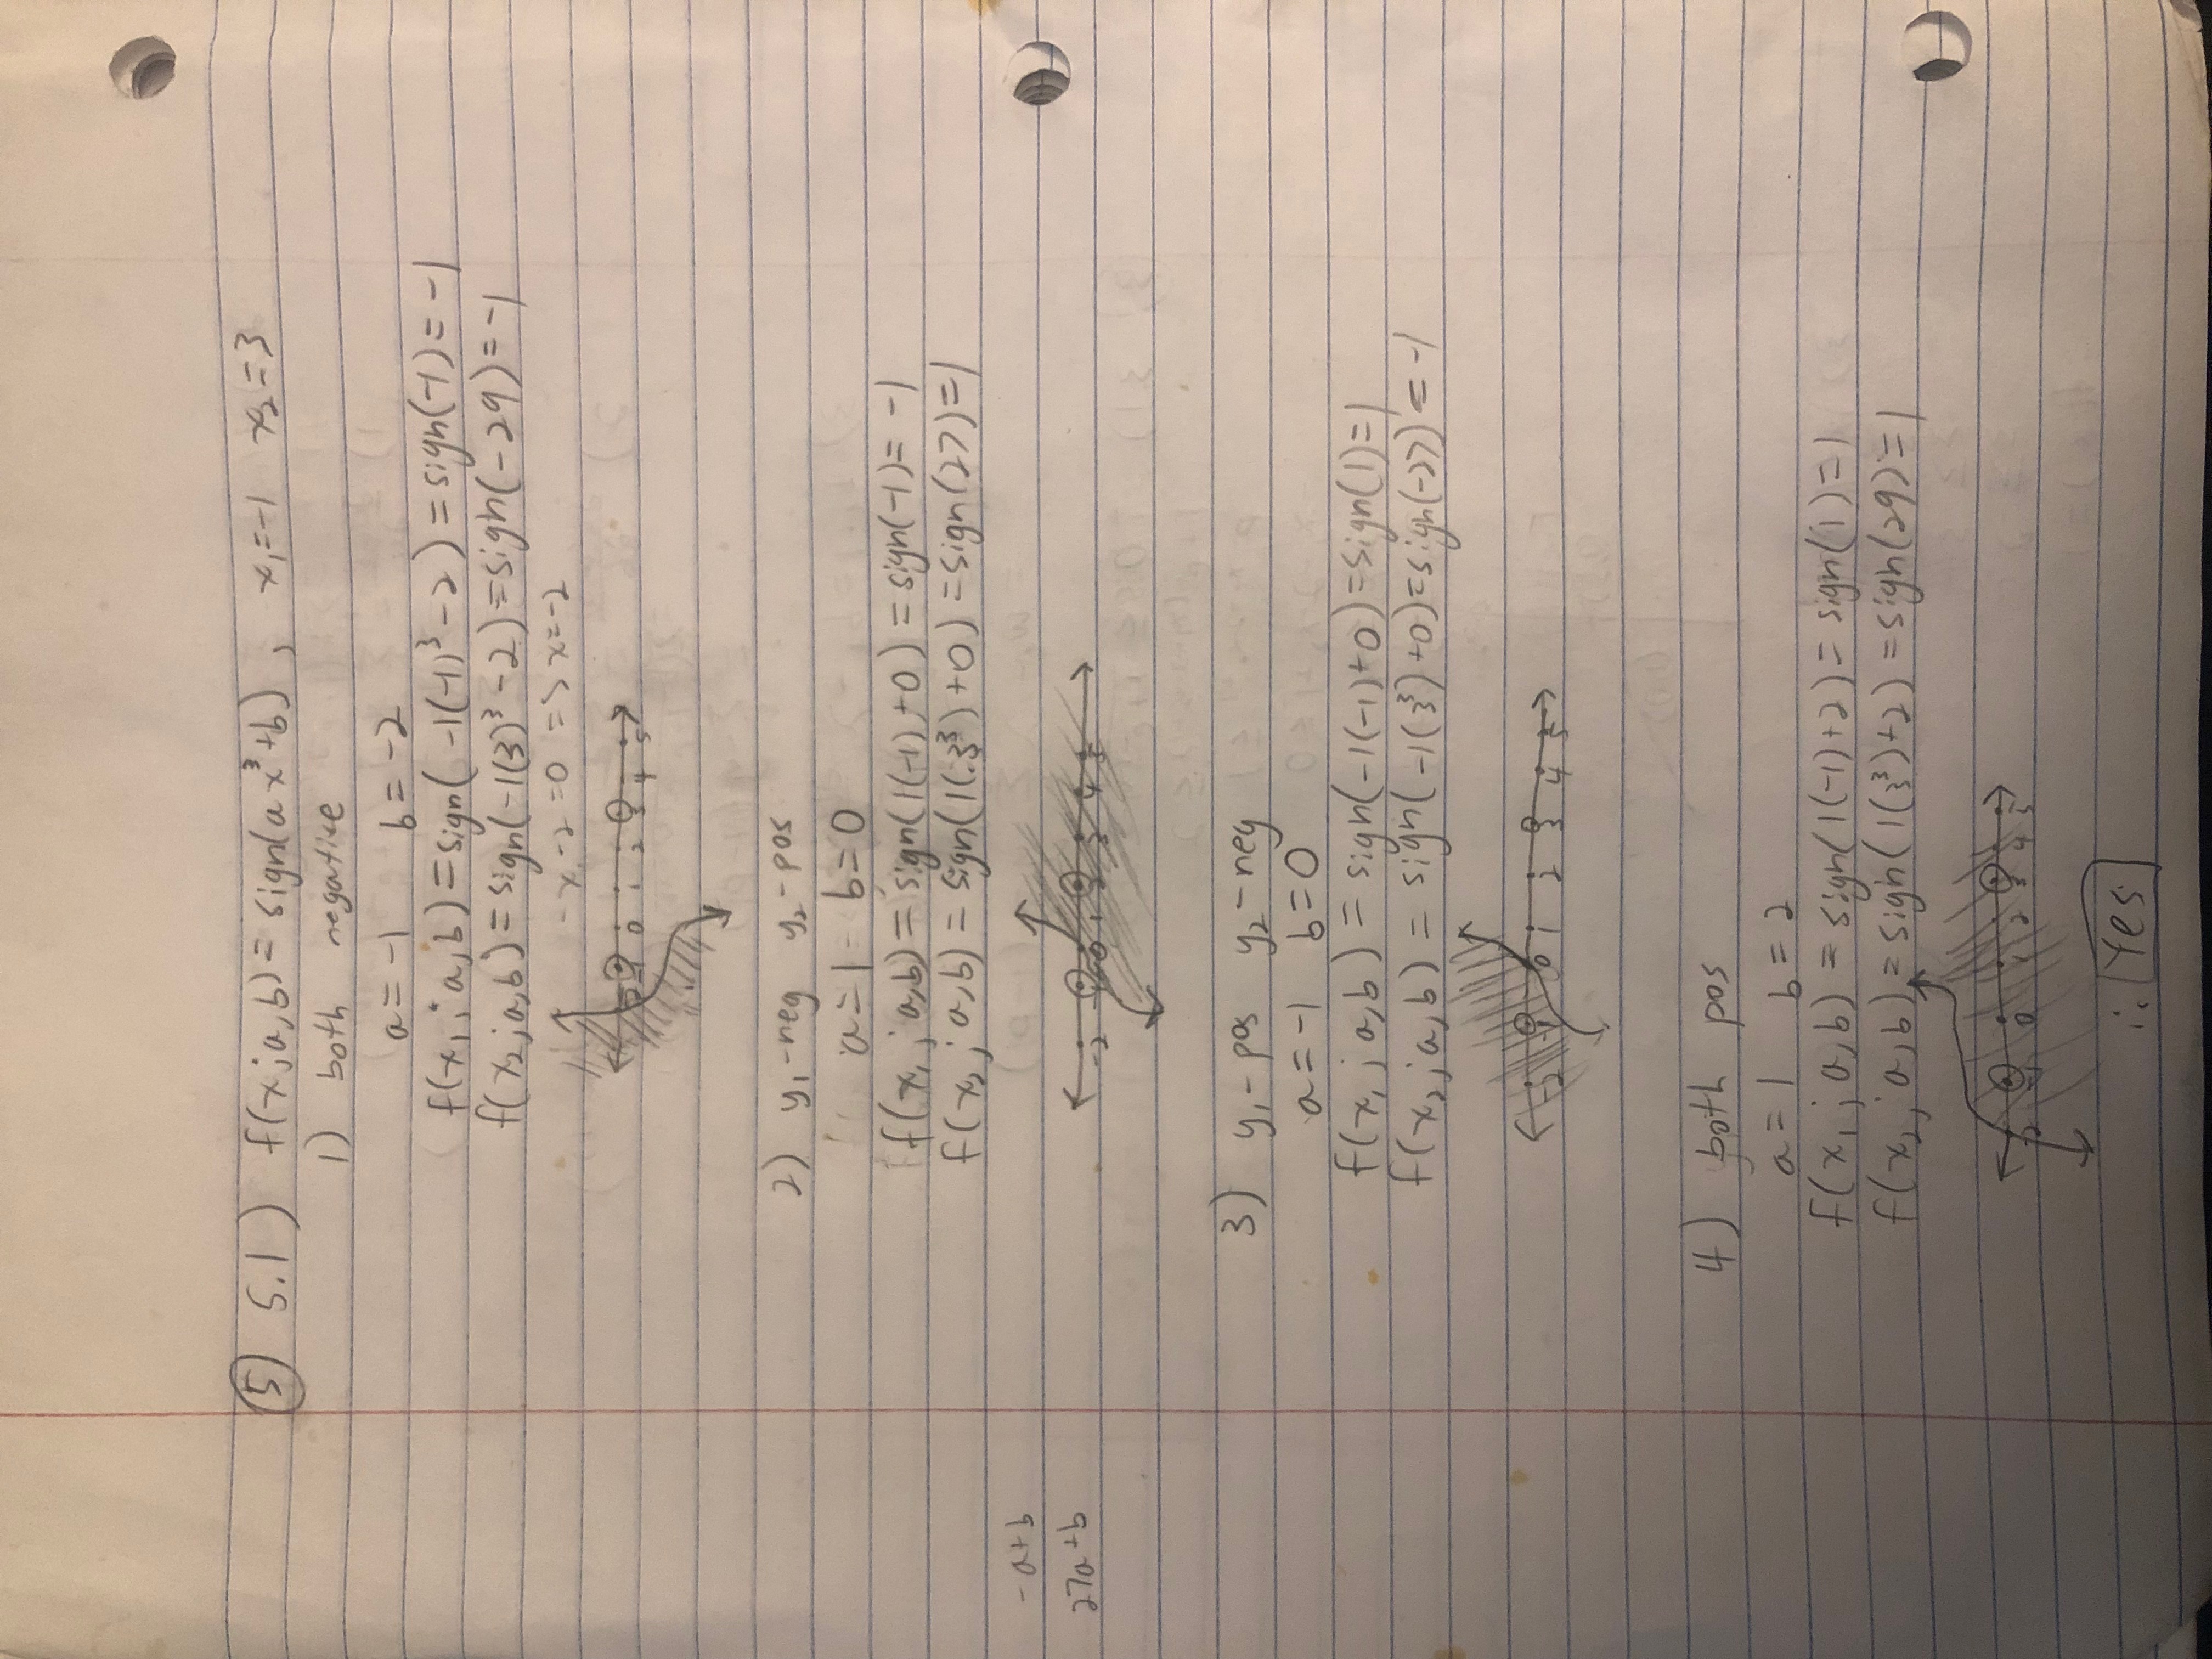 ⑤ 5.1) f(x;a,b)= sign(ax³+b), x₁=-1 x₂=3
1) both negative
a=-1 b=-2
f(x₁;a,b)=sign(-1(-1)³-2)=sign(-1)=-1
f(x₂;a,b)=sign(-1(3)³-2)=sign(-29)=-1
-x-2=0 => x=-2
-2 -1 0 1 2 3 4 5
2) y₁-neg y₂-pos
a=1 b=0
f(x₁;a,b)=sign(1(-1)+0)=sign(-1)=-1
f(x₂;a,b)=sign(1(3³)+0)=sign(27)=1
-a+b
27a+b
-2 -1 0 1 2 3 4 5
3) y₁-pos y₂-neg
a=-1 b=0
f(x₁;a,b)=sign(-1(-1)+0)=sign(1)=1
f(x₂;a,b)=sign(-1(3³)+0)=sign(-27)=-1
-2 -1 0 1 2 3 4 5
4) both pos
a=1 b=2
f(x₁;a,b)=sign(1(-1)+2)=sign(1)=1
f(x₂;a,b)=sign(1(3³)+2)=sign(29)=1
-2 -1 0 1 2 3 4 5
i. Yes